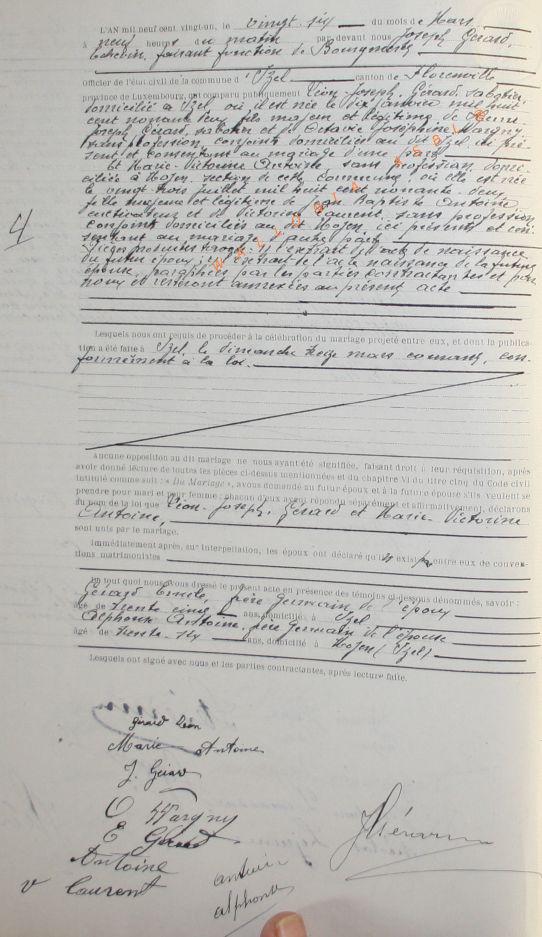 L'AN mil neuf cent vingt-un, le vingt six du mois de Mars
à neuf heures du matin par devant nous Joseph Gérard,
échevin, faisant fonction de Bourgmestre
Officier de l'état civil de la commune d'Izel canton de Florenville
province de Luxembourg, ont comparu publiquement Léon-Joseph Gérard, sabotier,
domicilié à Izel où il est né le dix janvier mil huit
cent nonante fils majeur et légitime de
Joseph Gérard, sabotier et de Octavie Joséphine Wargny
sans profession, conjoints domiciliés au dit Izel, ici pré-
sents et consentant au mariage d'une part
Et Marie-Victorine Antoine sans profession domi-
ciliée à Moyen, section de cette commune, où elle est née
le vingt-trois juillet mil huit cent nonante-deux
fille majeure et légitime de Jean Baptiste Antoine
cultivateur et de Victorine Laurent, sans profession
conjoints domiciliés au dit Moyen, ici présents et con-
sentant au mariage d'autre part
Pièces produites: l'extrait de l'acte de naissance
du futur époux; l'extrait de l'acte de naissance de la future
épouse, paraphées par les parties contractantes et par
nous et seront annexées au présent acte
WALLONIA ASBL
4
Lesquels nous ont requis de procéder à la célébration du mariage projeté entre eux, et dont la publica-
tion a été faite à Izel, le dimanche treize mars courant, con-
formément à la loi.
Aucune opposition au dit mariage ne nous ayant été signifiée, faisant droit à leur réquisition, après
avoir donné lecture de toutes les pièces ci-dessus mentionnées et du chapitre VI du titre cinq du Code civil
intitulé comme suit : « Du Mariage », avons demandé au futur époux et à la future épouse s'ils veulent se
prendre pour mari et pour femme : chacun d'eux ayant répondu séparément et affirmativement, déclarons
au nom de la loi que Léon-Joseph Gérard et Marie-Victorine
Antoine,
sont unis par le mariage.
Immédiatement après, sur interpellation, les époux ont déclaré qu'il existe pas entre eux de conven-
tions matrimoniales
En tout quoi nous avons dressé le présent acte en présence des témoins ci-dessous dénommés, savoir :
Gérard Emile, frère germain de l'époux
âgé de trente cinq ans, domicilié à Izel
Alphonse Antoine, frère germain de l'épouse
âgé de trente-six ans, domicilié à Moyen (Izel)
Lesquels ont signé avec nous et les parties contractantes, après lecture faite.
gérard Léon
Marie Antoine
J. Gérard
O Wargny
E Gérard
Antoine
v Laurent
antoine
alphonse
J Gérard